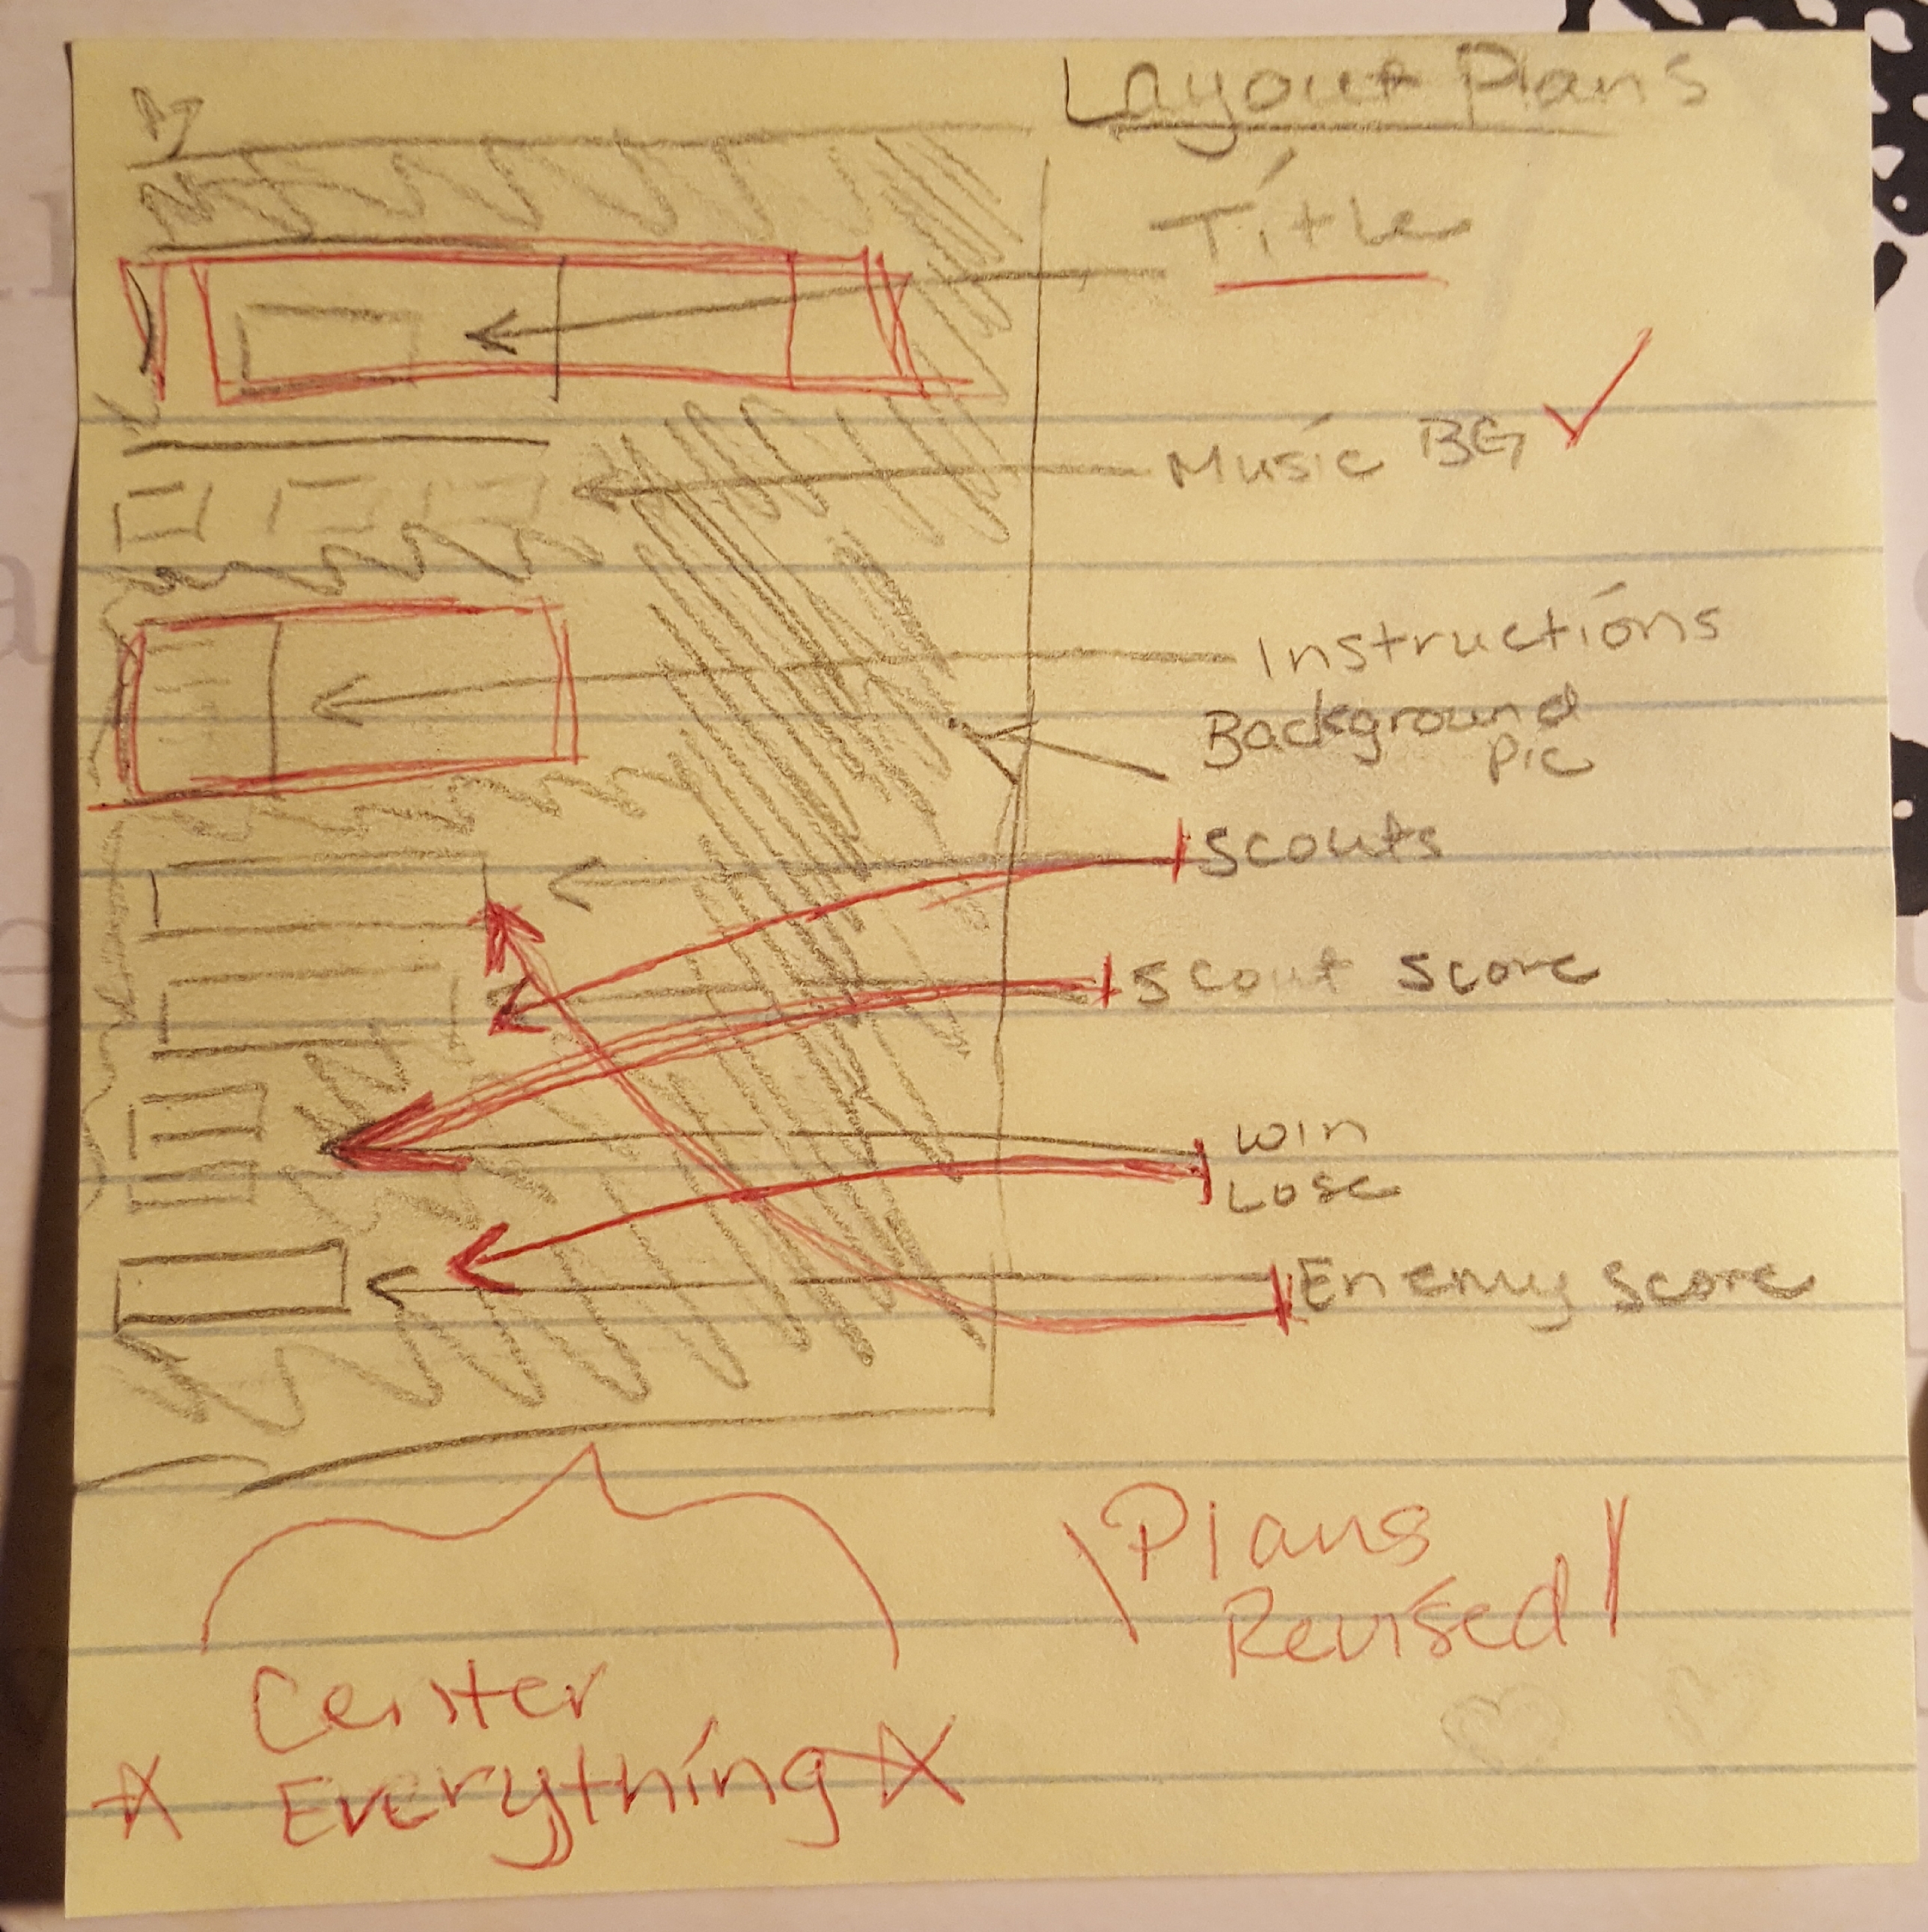 Layout Plans
Title
Music BG
Instructions
Background
Pic
Scouts
Scout Score
Win
Lose
Enemy Score
Plans
Revised
Center
Everything